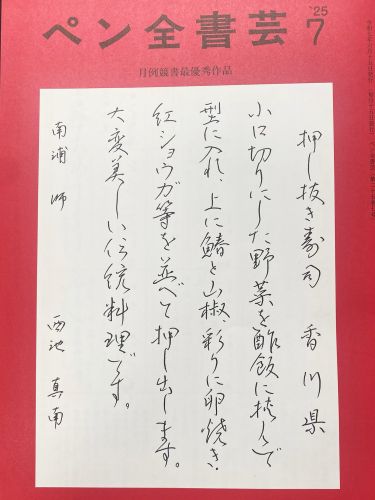 ペン全書芸
'25
7
月例競書最優秀作品
押し抜き寿司 香川県
小口切りにした野菜を酢飯に挟んで
型に入れ、上に鰆と山椒、彩りに卵焼き、
紅ショウガ等を並べて押し出します。
大変美しい伝統料理です。
南浦 師 西池 真南